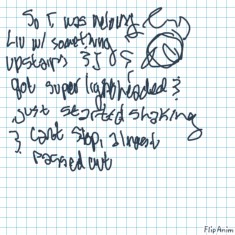 So I was helping
Liv w/ something
upstairs & I
got super lightheaded &
just started shaking
& cant stop, almost
passed out
FlipAnim